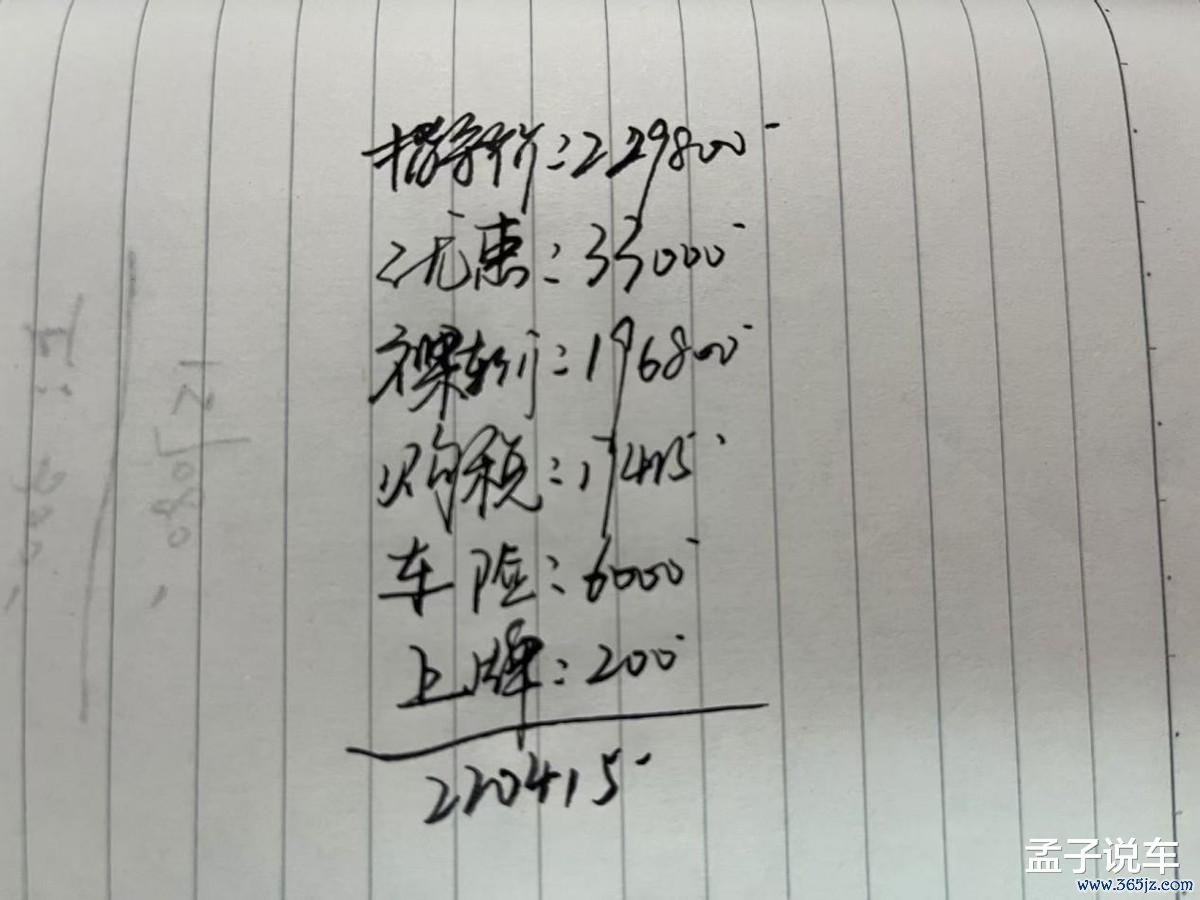 指导价：229800
优惠：33000
裸车价：196800
购税：17415
车险：6000
上牌：200
220415
孟子说车
www.365jz.com